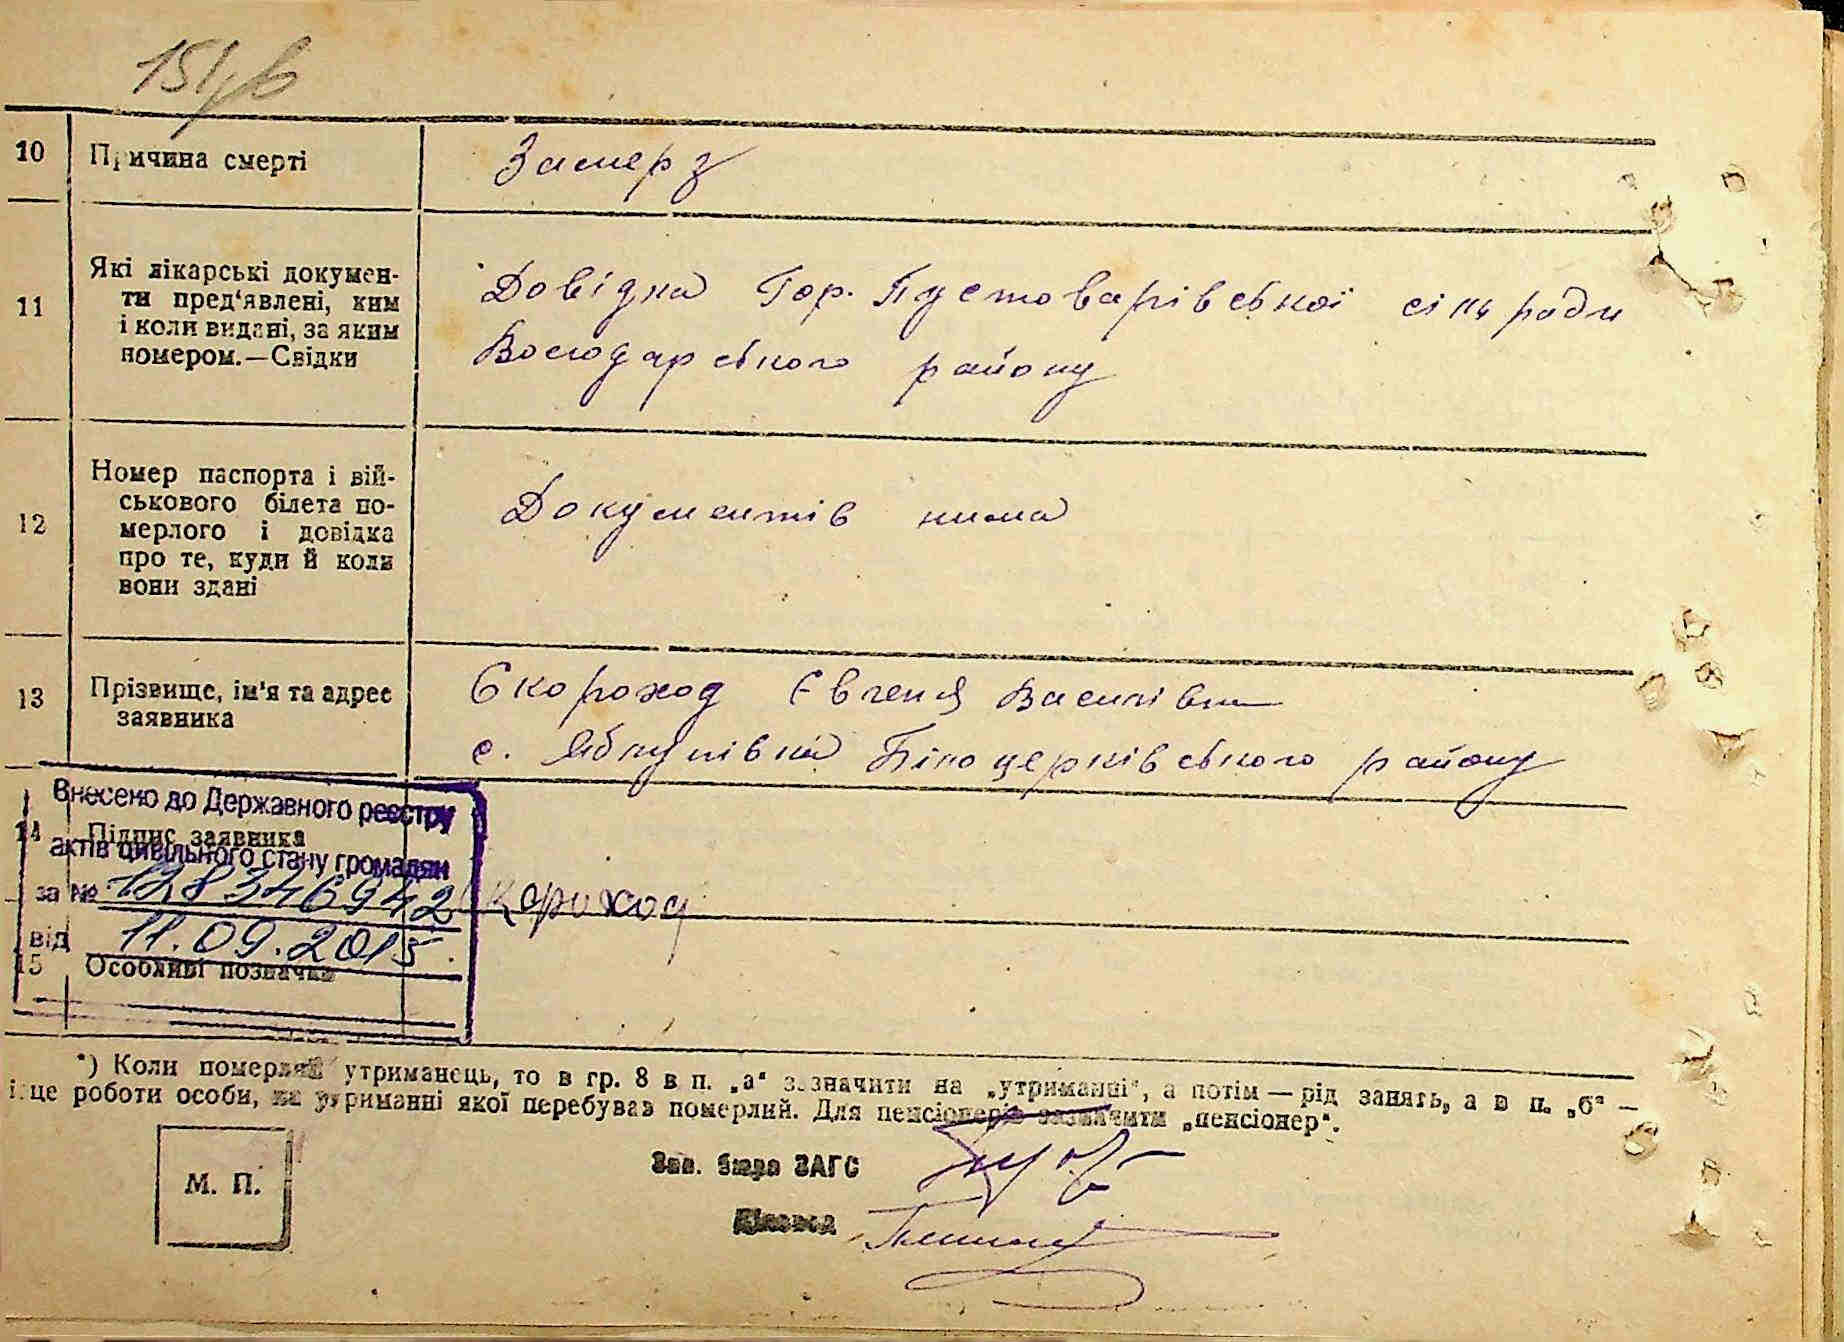 151 зв
10 Причина смерті Замерз
11 Які лікарські докумен-
ти пред'явлені, ким
і коли видані, за яким
номером.—Свідки
Довідка Гор. Пустоварівської сіль ради
Володарського району
12 Номер паспорта і вій-
ськового білета по-
мерлого і довідка
про те, куди й коли
вони здані
Документів нима
13 Прізвище, ім'я та адрес
заявника
Скороход Євгенія Василівна
с. Яблунівка Білоцерківського району
Внесено до Державного реєстру
14 Підпис заявника
актів цивільного стану громадян
за № 12834 6942 Скороход
від 11.09.2015.
15 Особливі позначки
*) Коли померлий утриманець, то в гр. 8 в п. „а“ зазначити на „утриманні“, а потім — рід занять, а в п. „б“ —
місце роботи особи, на утриманні якої перебував померлий. Для пенсіонерів зазначити „пенсіонер“.
М. П.
Зав. бюро ЗАГС
Діловод